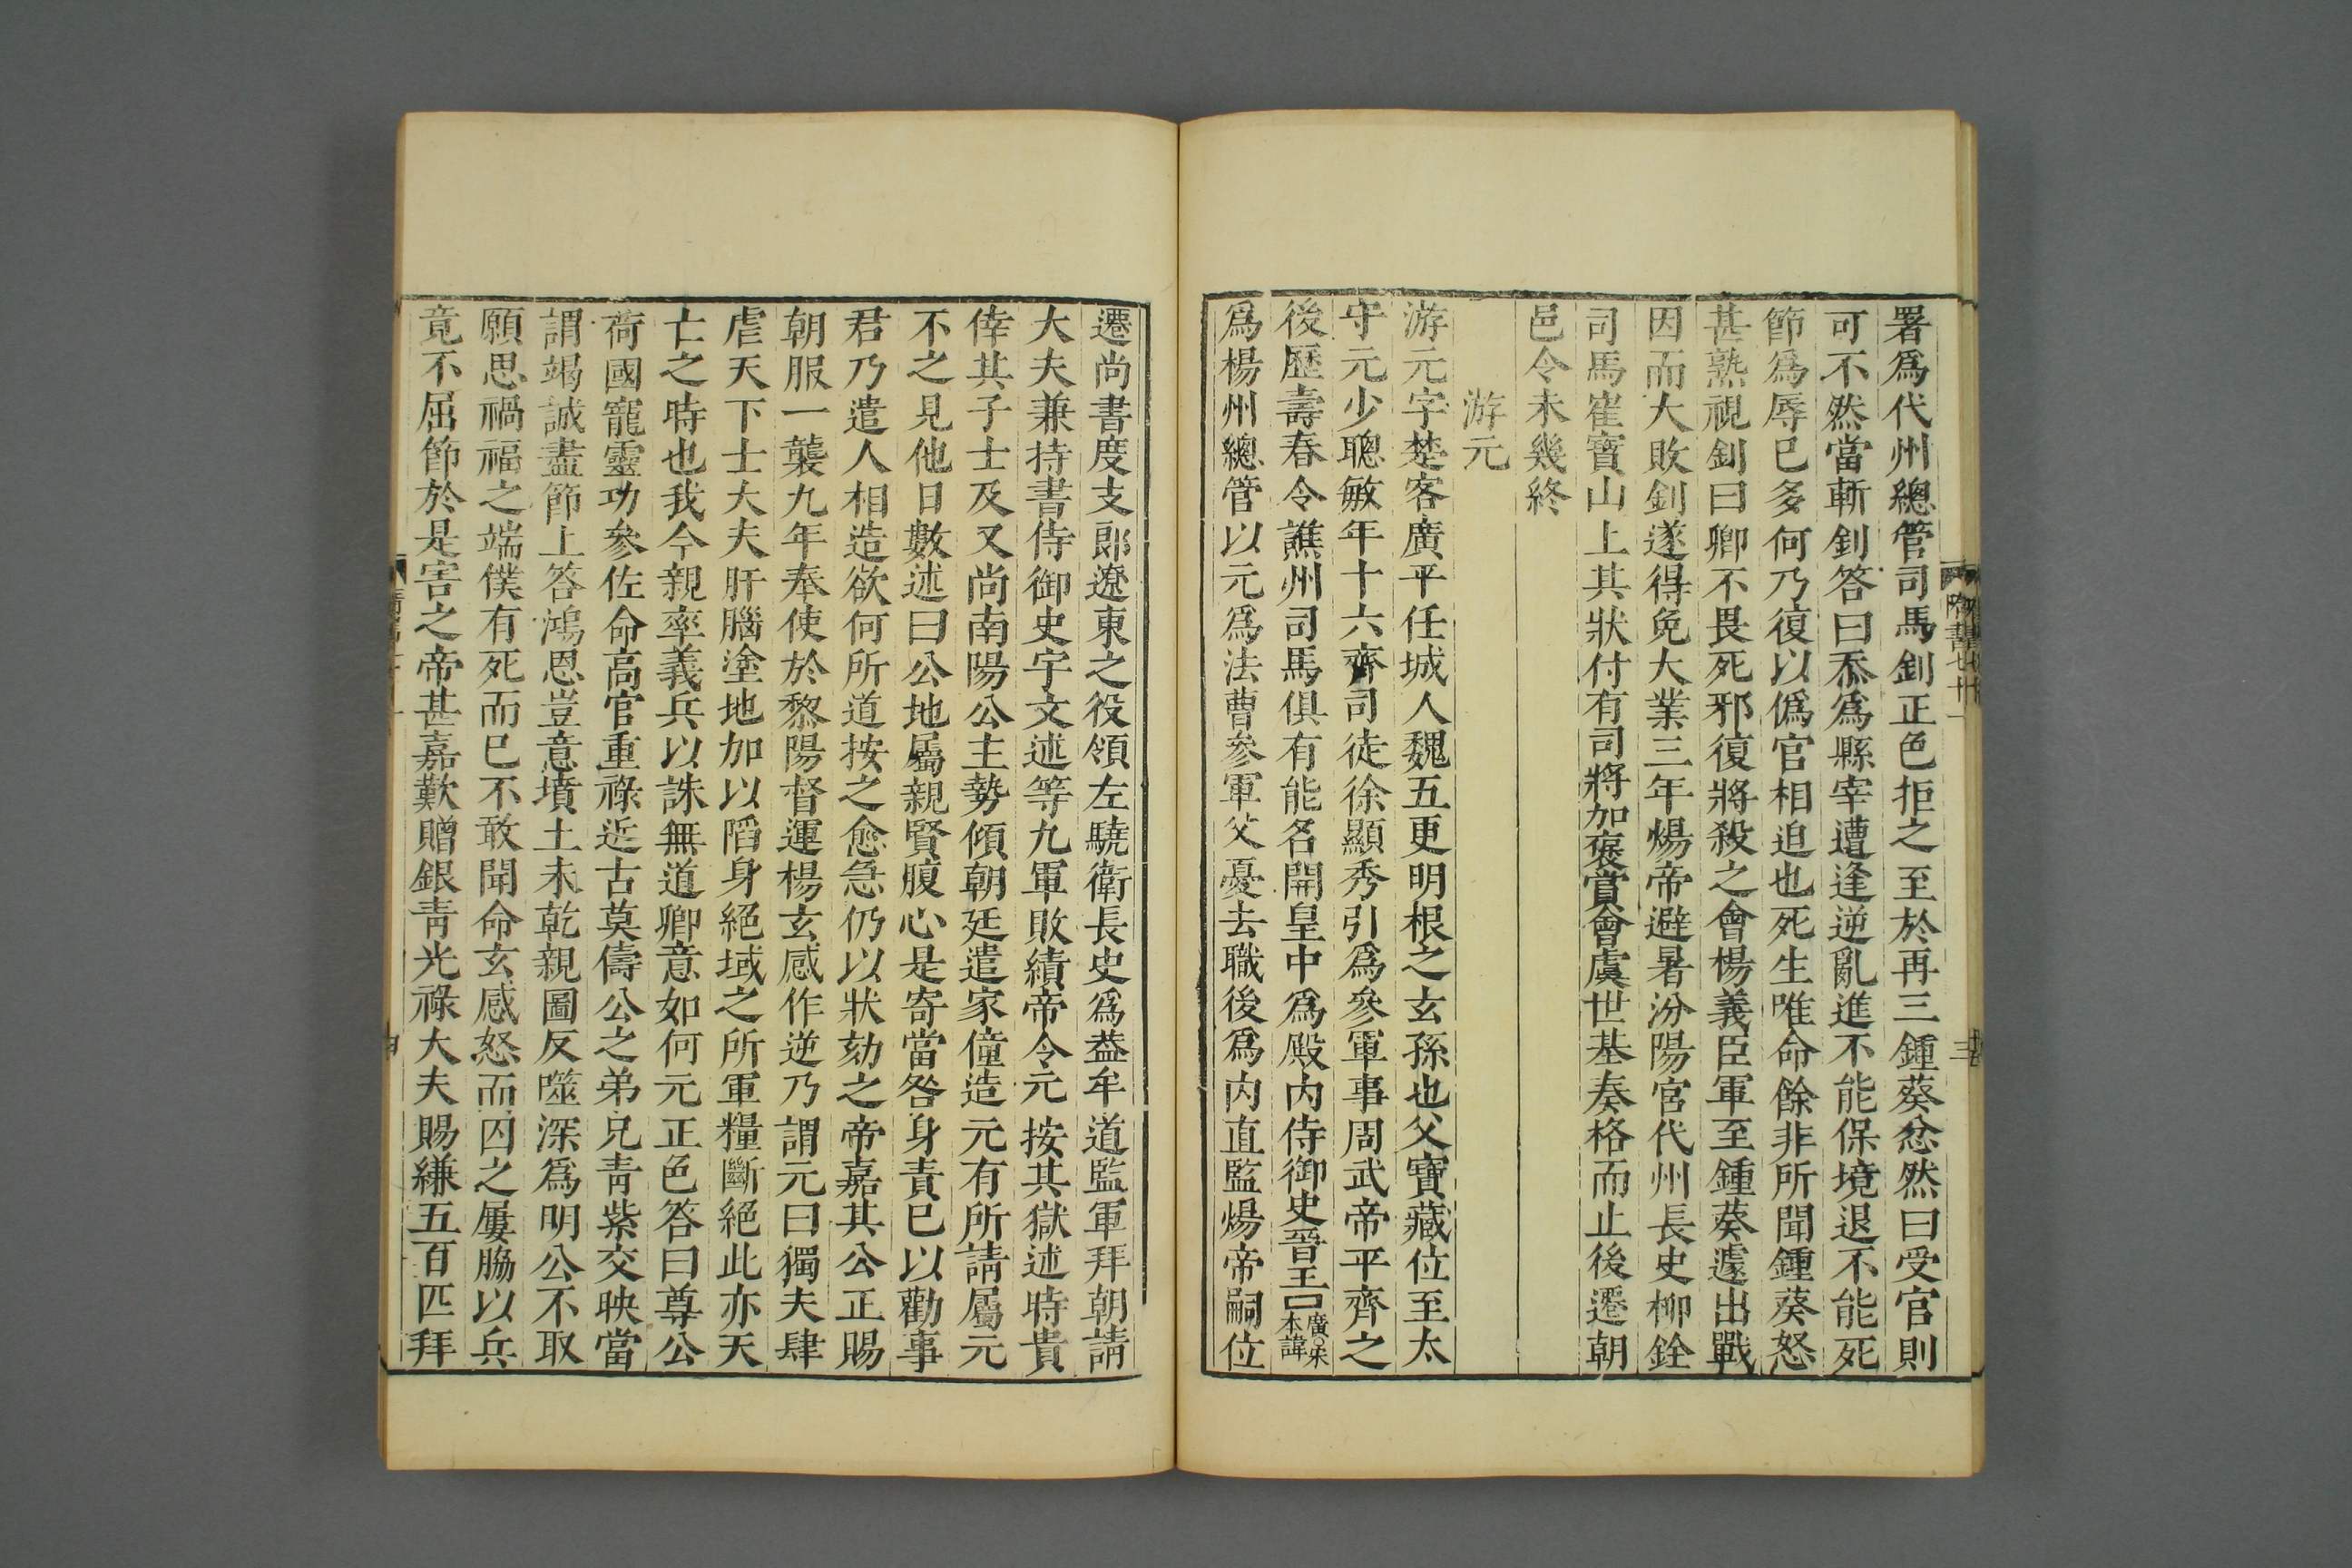 署爲代州總管司馬釗正色拒之至於再三鍾葵忿然曰受官則
可不然當斬釗答曰忝爲縣宰遭逢逆亂進不能保境退不能死
節爲辱已多何乃復以僞官相迫也死生唯命餘非所聞鍾葵怒
甚熟視釗曰卿不畏死邪復將殺之會楊義臣軍至鍾葵遽出戰
因而大敗釗遂得免大業三年煬帝避暑汾陽宮代州長史柳銓
司馬崔寶山上其狀付有司將加褒賞會虞世基奏格而止後遷朝
邑令未幾終
游元
游元字楚客廣平任城人魏五更明根之玄孫也父寶藏位至太
守元少聰敏年十六齊司徒徐顯秀引爲參軍事周武帝平齊之
後歷壽春令譙州司馬俱有能名開皇中爲殿內侍御史晉王口廣○宋本諱
爲楊州總管以元爲法曹參軍父憂去職後爲內直監煬帝嗣位
遷尚書度支郎遼東之役領左驍衛長史爲蓋牟道監軍拜朝請
大夫兼持書侍御史宇文述等九軍敗績帝令元按其獄述時貴
倖其子士及又尚南陽公主勢傾朝廷遣家僮造元有所請屬元
不之見他日數述曰公地屬親賢腹心是寄當咎身責已以勸事
君乃遣人相造欲何所道按之愈急仍以狀劾之帝嘉其公正賜
朝服一襲九年奉使於黎陽督運楊玄感作逆乃謂元曰獨夫肆
虐天下士大夫肝腦塗地加以陷身絕域之所軍糧斷絕此亦天
亡之時也我今親率義兵以誅無道卿意如何元正色答曰尊公
荷國寵靈功參佐命高官重祿近古莫儔公之弟兄靑紫交映當
謂竭誠盡節上答鴻恩豈意墳土未乾親圖反噬深爲明公不取
願思禍福之端僕有死而已不敢聞命玄感怒而囚之屢脇以兵
竟不屈節於是害之帝甚嘉歎贈銀靑光祿大夫賜縑五百匹拜